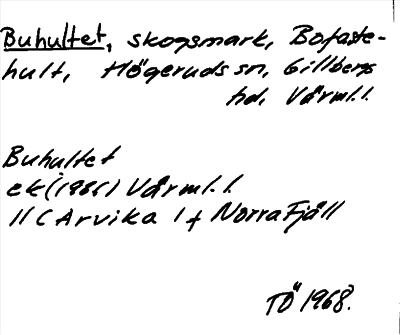 Buhultet, skogsmark, Bofaste-
hult, Högeruds sn, Gillbergs
hd. Värml. l.
Buhultet
ek Värml. l.
11 C Arvika 1 f Norra Fjäll
TÖ 1968.